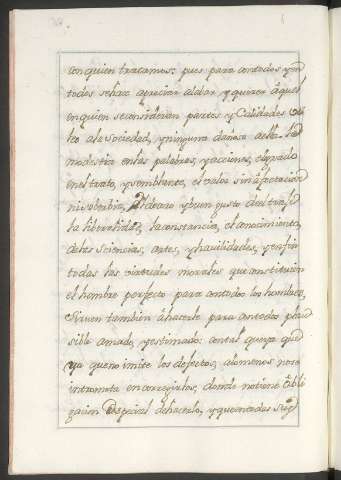 con quien tratamos: pues para con todos y en
todos se haze apreciar alabar y querer aquel
en quien se consideran partes y Calidades
a la sociedad, y ninguna dañosa a ella. La
modestia en las palabras, y acciones, el agrado
en el trato, y semblante, el valor sin afectacion
ni soberbia, el deceo y buen gusto del trage
la liberalidad, la constancia, el conocimiento
de las sciencias, artes, y havilidades, y en fin
todas las virtudes morales que constituien
el hombre perfecto para con todos los hombres,
Sirven tambien a hacerle para con todos plau
sible amado, y estimado: con tal que ya que
ya que no imite los defectos, a lo menos no se
intrometa en corregirlos, donde no tiene obli
gacion Especial de hacerlo, y que en todas sus